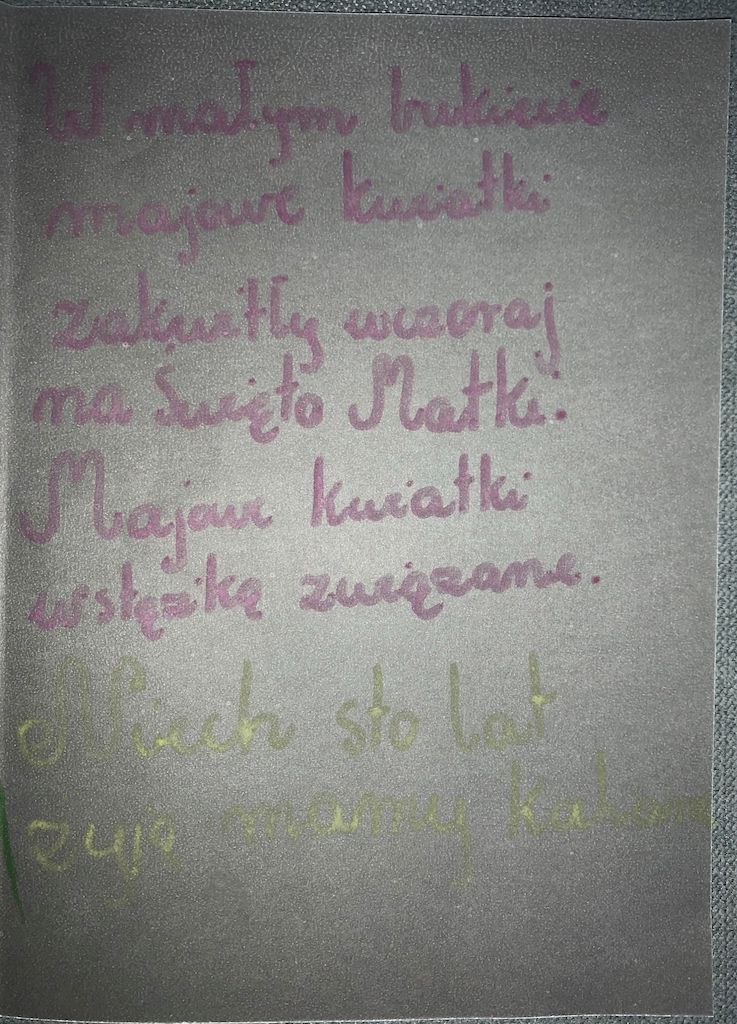 W małym bukiecie
majowe kwiatki
zakwitły wczoraj
na Święto Matki.
Majowe kwiatki
wstęzką związane.
Niech sto lat
żyją mamy kochane